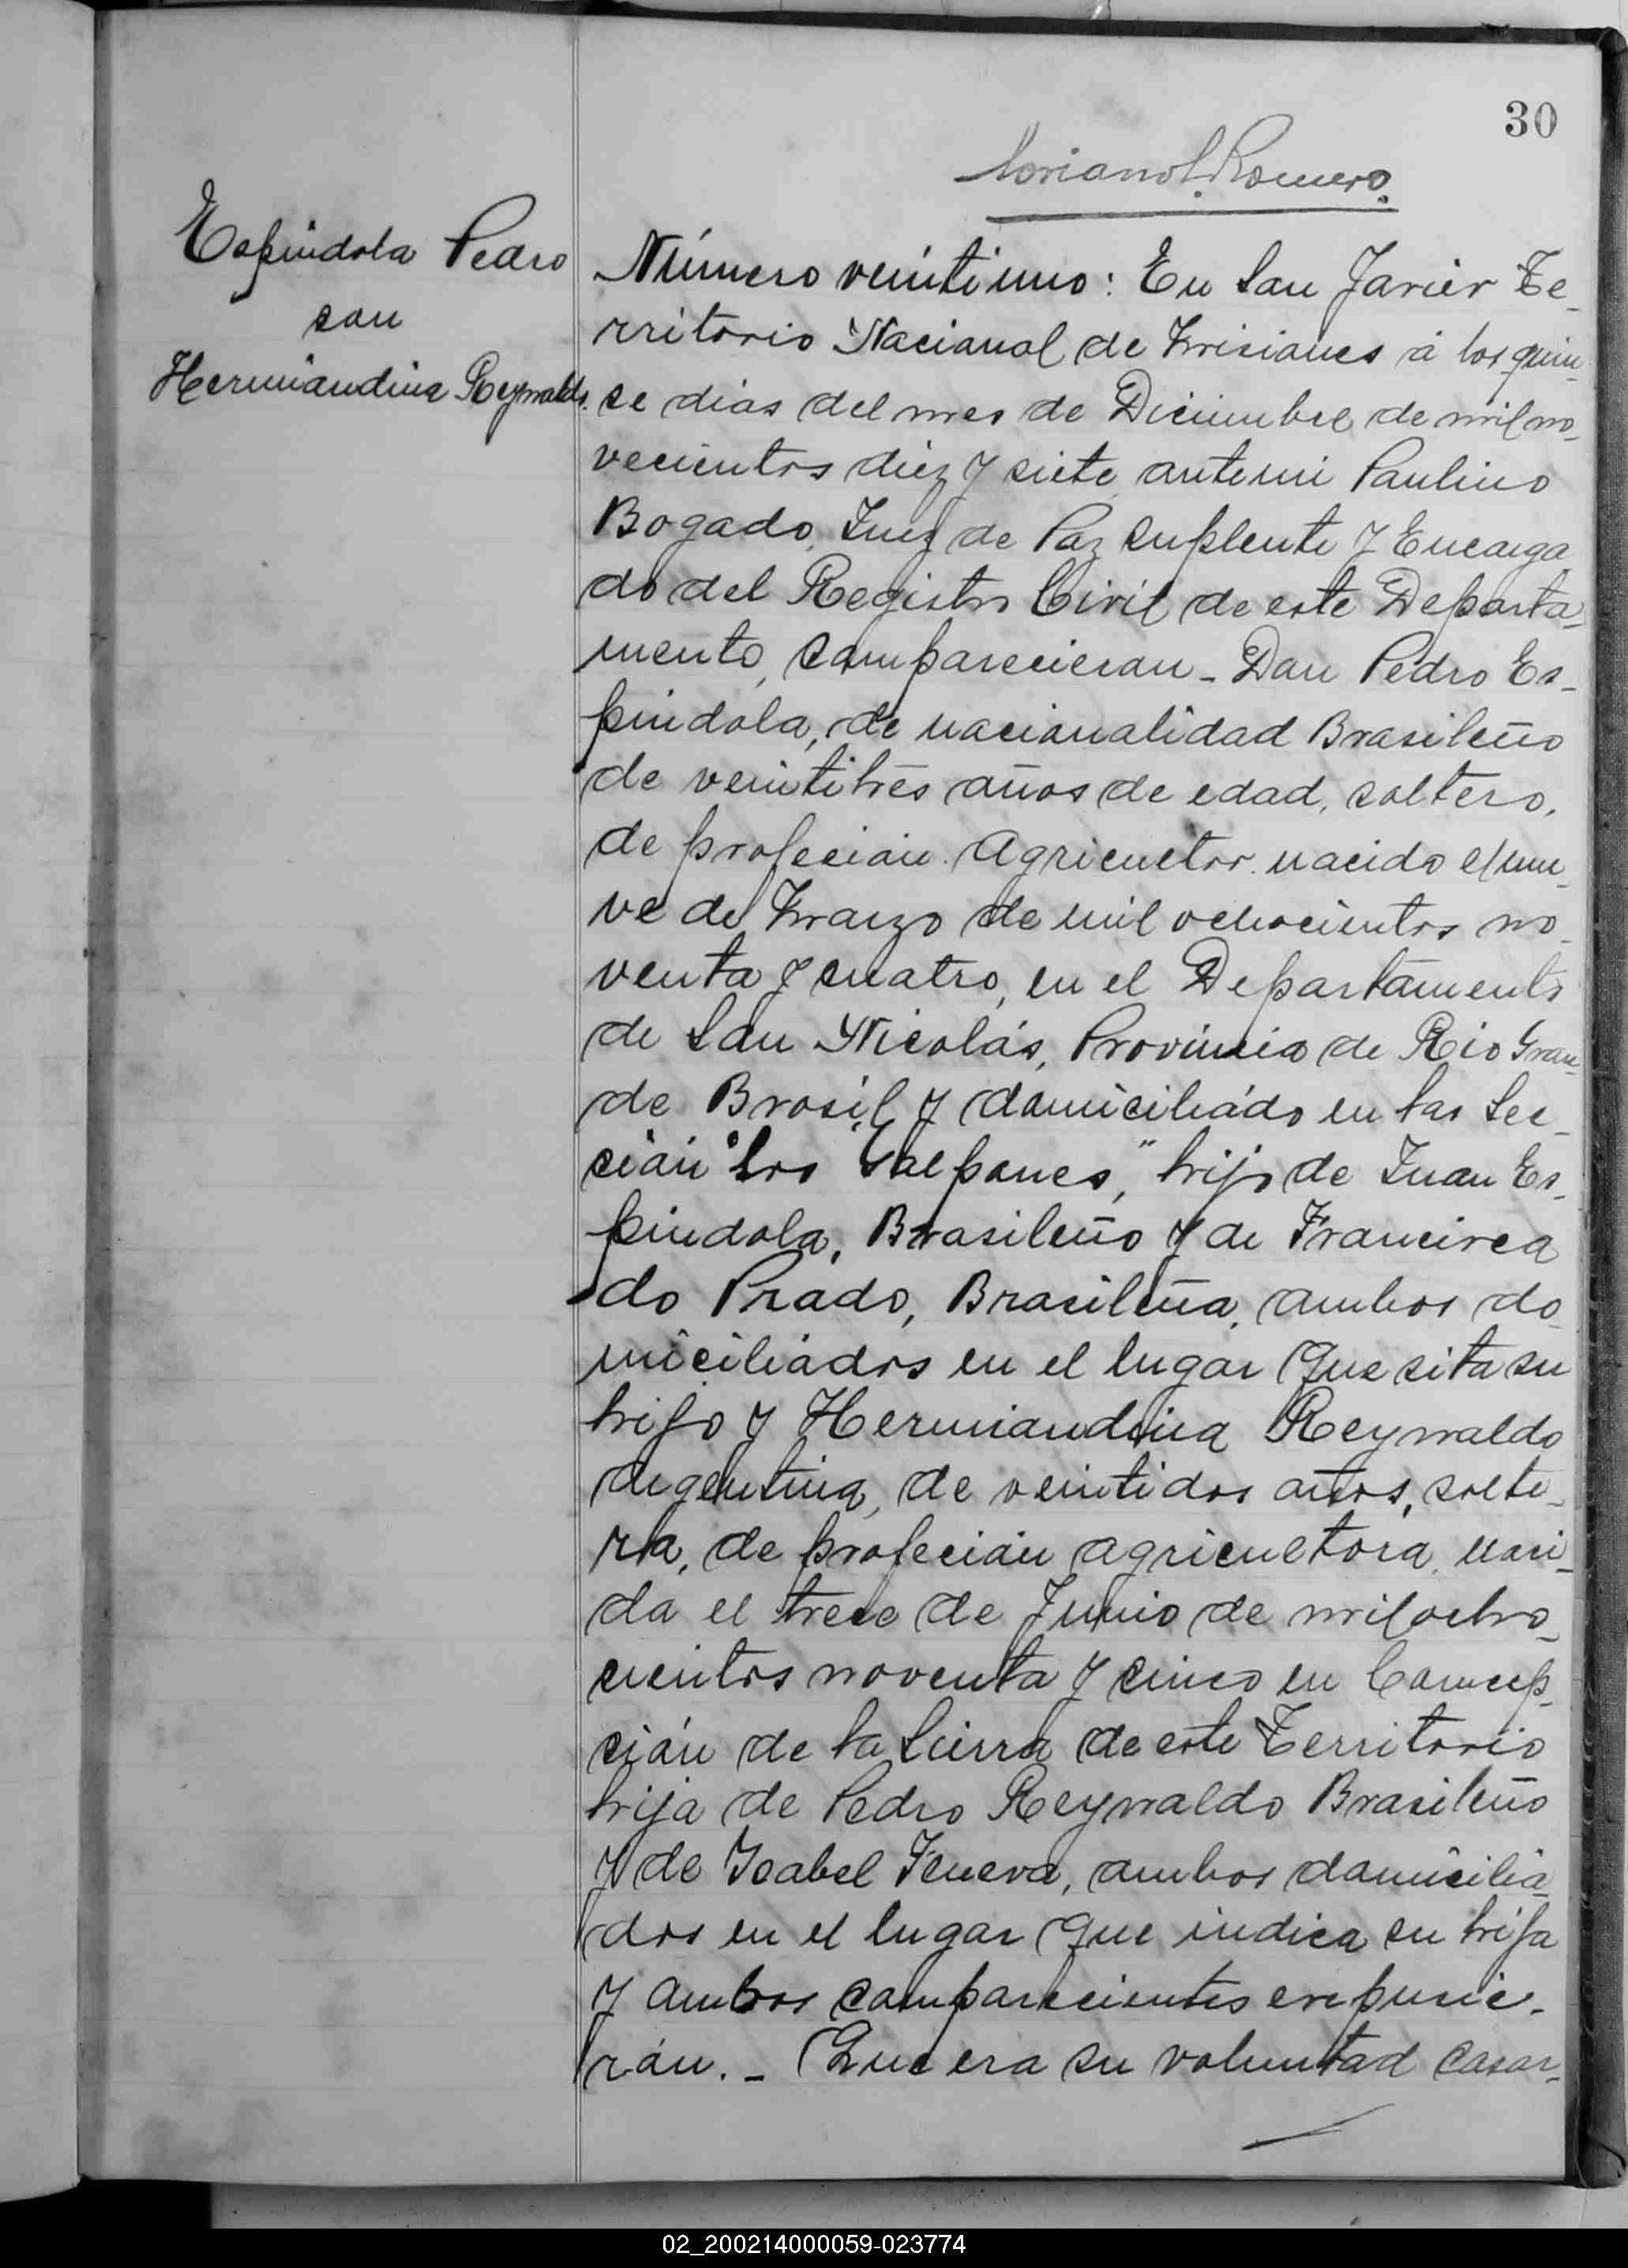 30
Soriano L. Romero
Espindola Pedro
con
Hermiandina Reynaldo.
Número veintiuno: En San Javier Te-
rritorio Nacional de Misiones á los quin-
ce dias del mes de Diciembre de mil no-
vecientos diez y siete ante mi Paulino
Bogado, Juez de Paz Suplente y Encarga
do del Registro Civil de este Departa-
mento, Comparecieron - Don Pedro Es-
pindola, de nacionalidad Brasileño
de veintitrés años de edad, soltero,
de profeción Agricultor nacido el nue-
ve de Marzo de mil ochocientos no-
venta y cuatro, en el Departamento
de San Nicolás, Provincia de Rio Gran-
de Brasil y domiciliado en las Sec-
ción "Los Galpones," hijo de Juan Es-
pindola, Brasileño y de Francisca
do Prado, Brasileña, ambos do
miciliados en el lugar que sita su
hijo y Hermiandina Reynaldo
Argentina, de veintidos años, solte-
ra, de profeción agricultora, nasi-
da el trece de Junio de mil ocho-
cientos noventa y cinco en Concep-
ción de la Sierra de este Territorio
hija de Pedro Reynaldo Brasileño
y de Isabel, ambos domicilia-
dos en el lugar que indica su hija
y ambos comparecientes expusie-
rón. - Que era su voluntad casar-
02_200214000059-023774